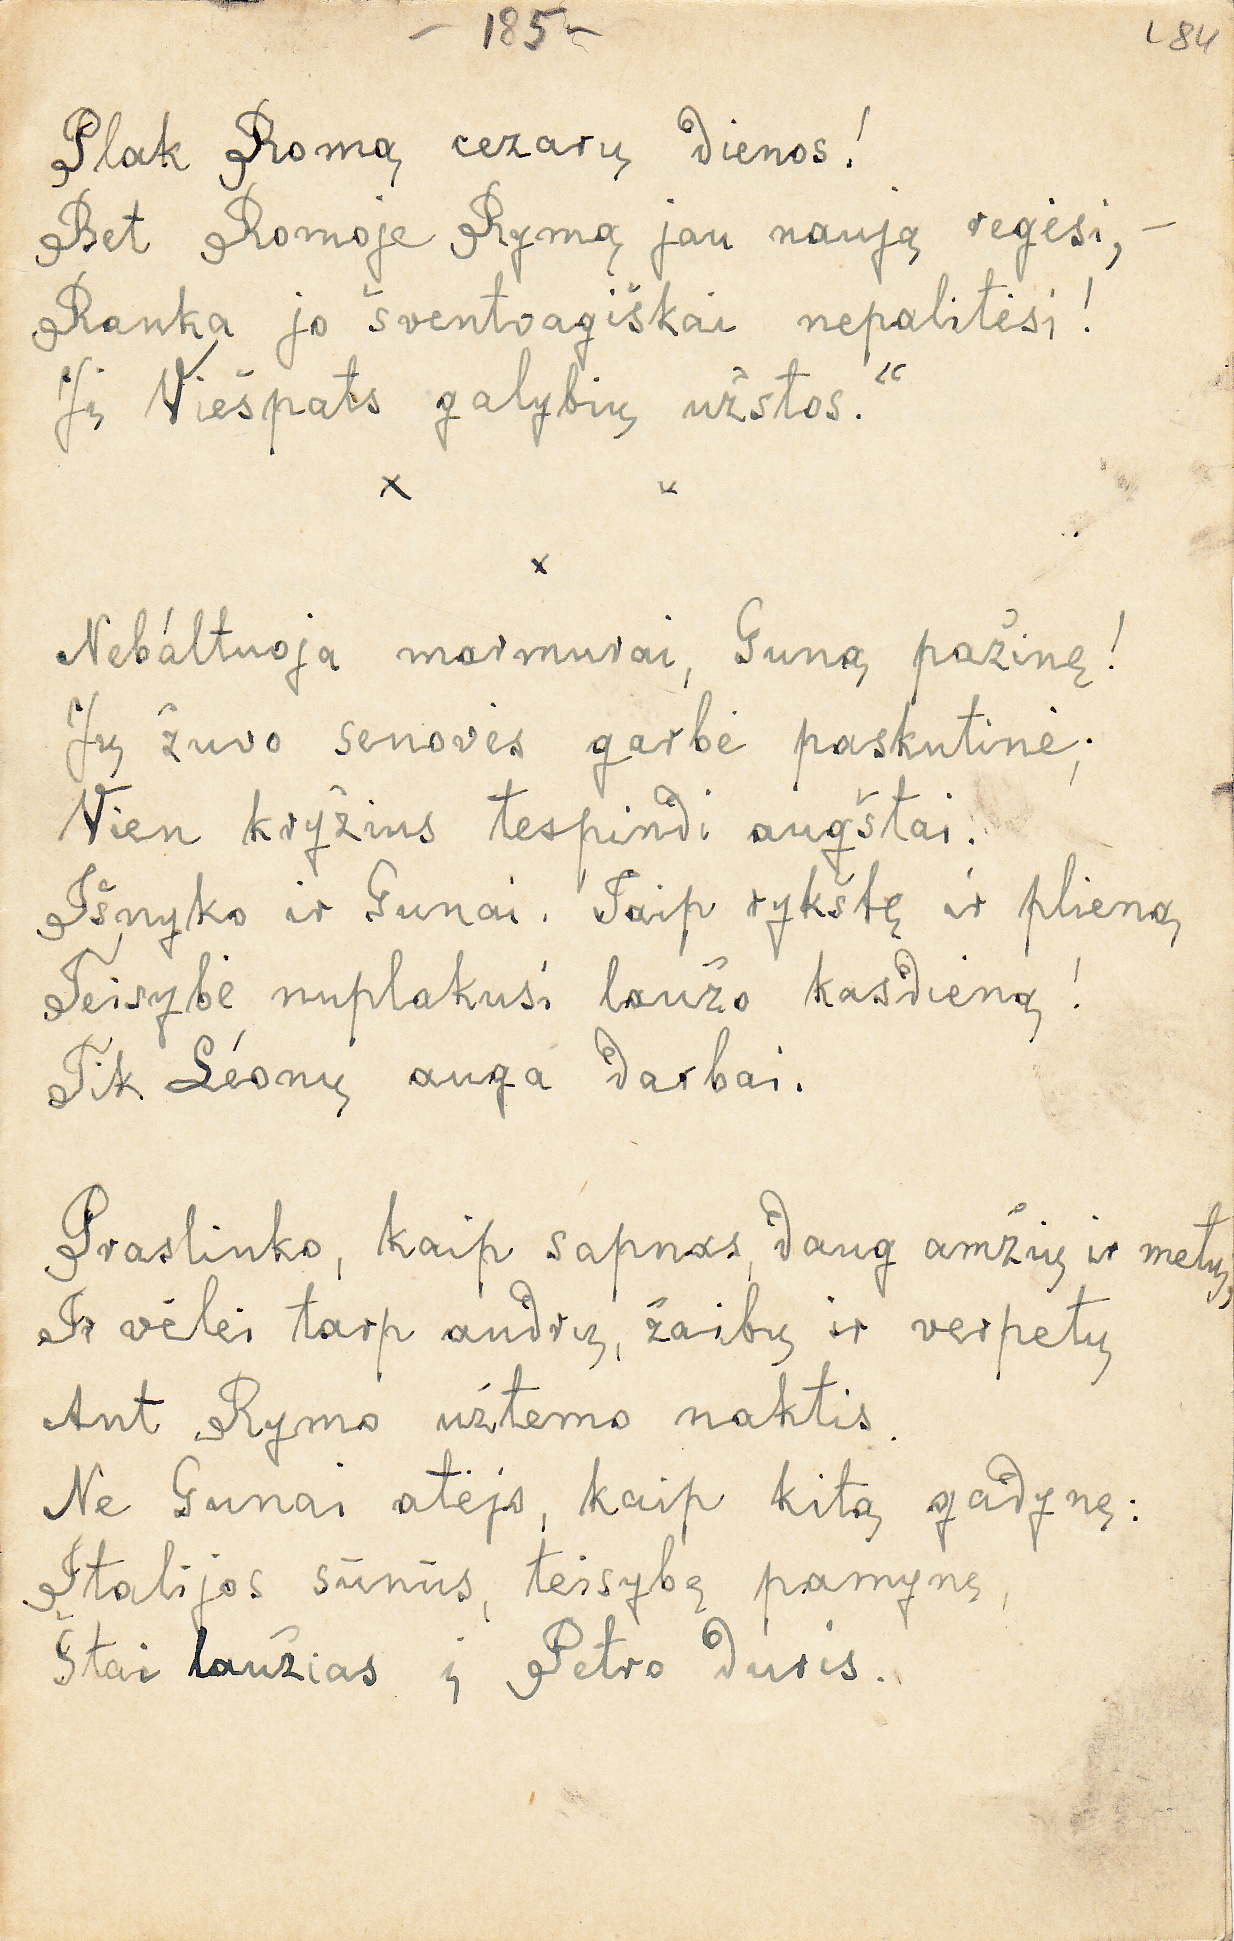 – 185 –
184
Plak Romą cezarų dienos!
Bet Romoje Rymą jau naują regėsi, –
Ranka jo šventvagiškai nepalitėsi!
Jį Viešpats galybių užstos.“
x x
x
Nebáltuoja marmurai, Guną pažinę!
Jų žuvo senovės garbė paskutinė;
Vien kryžius tespindi augštai.
Išnyko ir Gunai. Taip rykštę ir plieną
Teisybė nuplakusi laužo kasdieną!
Tik Léonų auga darbai.
Praslinko, kaip sapnas, daug amžių ir metų,
Ir vėlei tarp audrų, žaibų ir verpetų
Ant Rymo užtemo naktis.
Ne Gunai atėjo, kaip kitą gadynę:
Italijos sūnūs, teisybę pamynę,
Štai laužias į Petro duris.